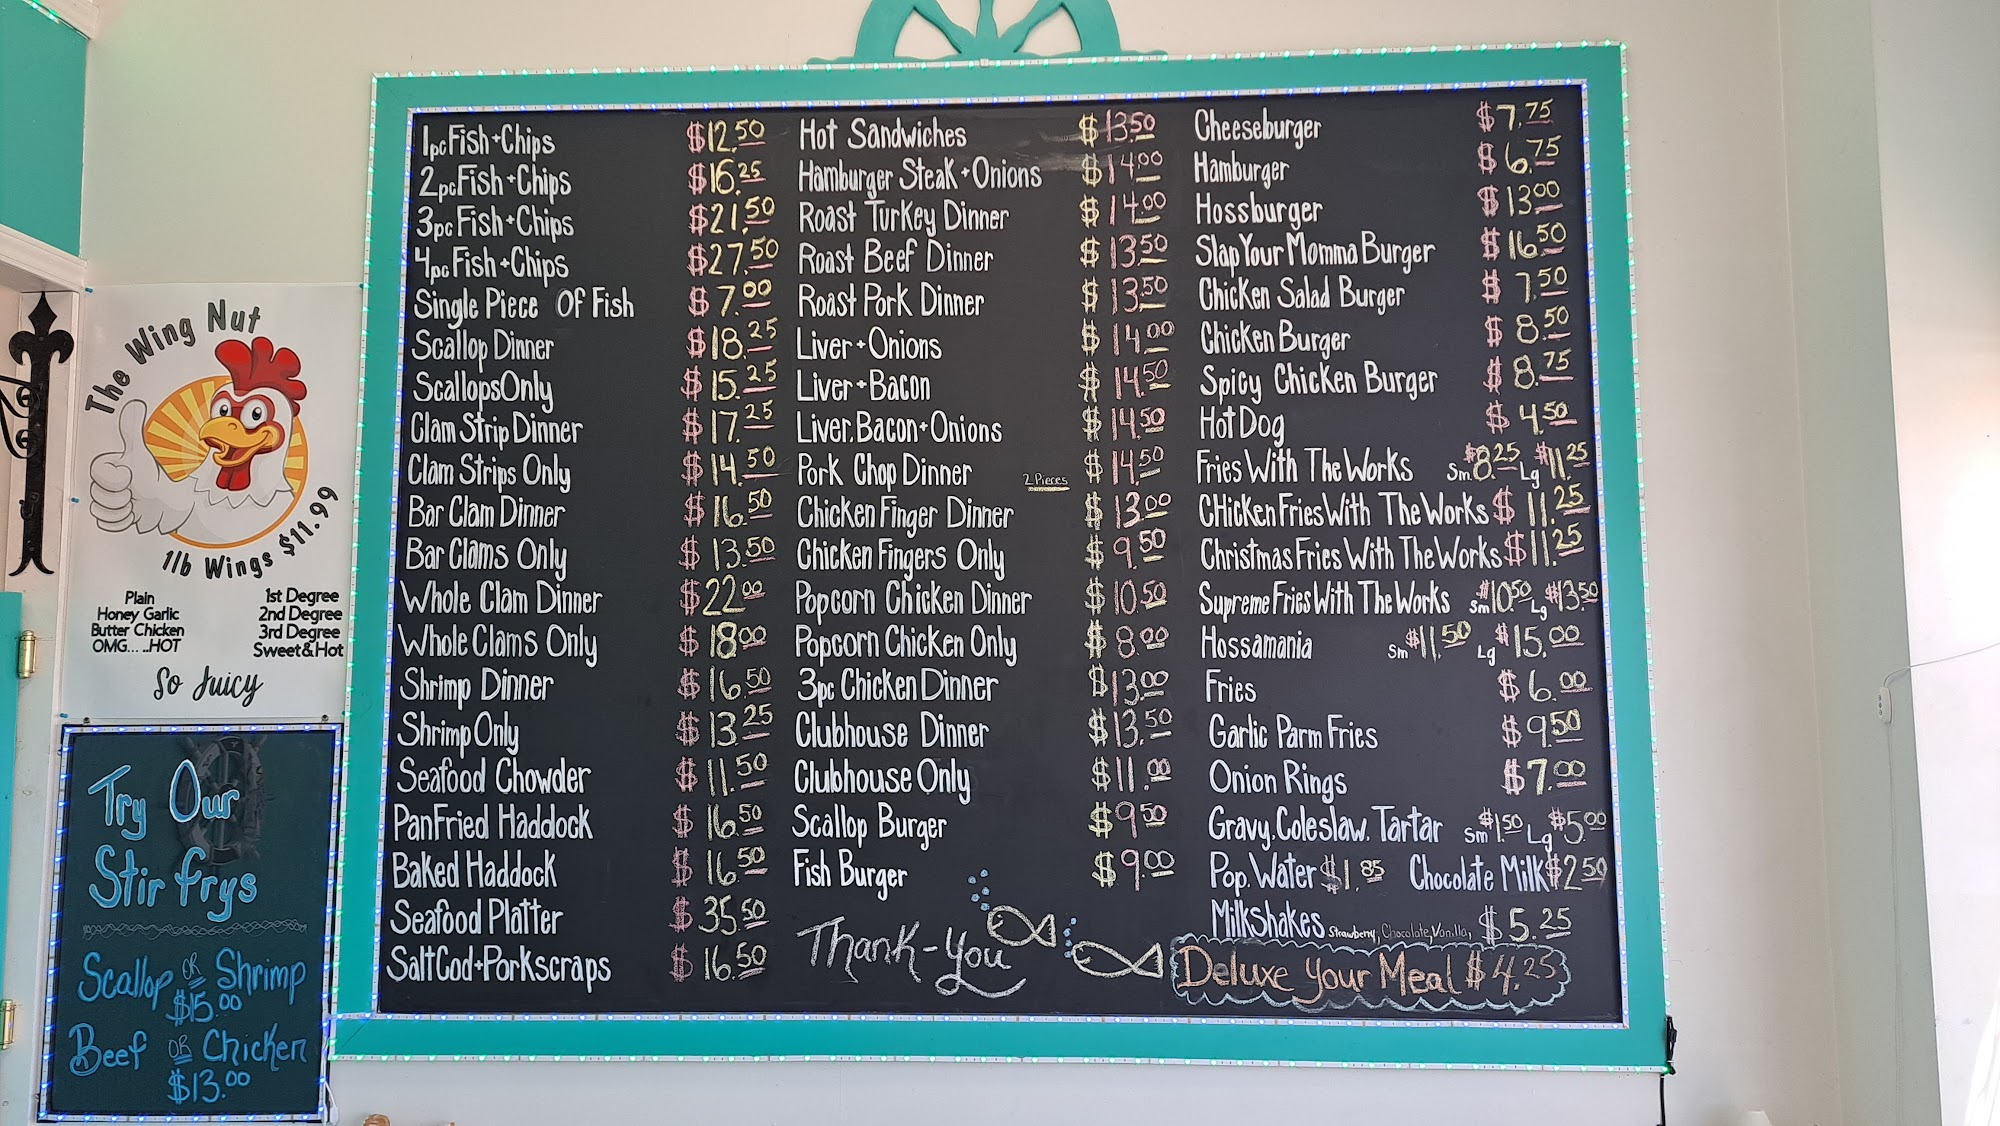 The Wing Nut
1lb Wings $11.99
Plain 1st Degree
Honey Garlic 2nd Degree
Butter Chicken 3rd Degree
OMG.... ..HOT Sweet&Hot
So Juicy
Try Our
Stir frys
Scallop OR Shrimp
$15.00
Beef OR Chicken
$13.00
1pc Fish+Chips $12.50
2pc Fish+Chips $16.25
3pc Fish+Chips $21.50
4pc Fish+Chips $27.50
Single Piece Of Fish $7.00
Scallop Dinner $18.25
Scallops Only $15.25
Clam Strip Dinner $17.25
Clam Strips Only $14.50
Bar Clam Dinner $16.50
Bar Clams Only $13.50
Whole Clam Dinner $22.00
Whole Clams Only $18.00
Shrimp Dinner $16.50
Shrimp Only $13.25
Seafood Chowder $11.50
Pan Fried Haddock $16.50
Baked Haddock $16.50
Seafood Platter $35.50
Salt Cod+Porkscraps $16.50
Hot Sandwiches $13.50
Hamburger Steak+Onions $14.00
Roast Turkey Dinner $14.00
Roast Beef Dinner $13.50
Roast Pork Dinner $13.50
Liver+Onions $14.00
Liver+Bacon $14.50
Liver, Bacon+Onions $14.50
Pork Chop Dinner 2 Pieces $14.50
Chicken Finger Dinner $13.00
Chicken Fingers Only $9.50
Popcorn Chicken Dinner $10.50
Popcorn Chicken Only $8.00
3pc Chicken Dinner $13.00
Clubhouse Dinner $13.50
Clubhouse Only $11.00
Scallop Burger $9.50
Fish Burger $9.00
Thank-You
Cheeseburger $7.75
Hamburger $6.75
Hossburger $13.00
Slap Your Momma Burger $16.50
Chicken Salad Burger $7.50
Chicken Burger $8.50
Spicy Chicken Burger $8.75
Hot Dog $4.50
Fries With The Works Sm $8.25 Lg $11.25
CHicken Fries With The Works $11.25
Christmas Fries With The Works $11.25
Supreme Fries With The Works Sm $10.50 Lg $13.50
Hossamania Sm $11.50 Lg $15.00
Fries $6.00
Garlic Parm Fries $9.50
Onion Rings $7.00
Gravy, Coleslaw, Tartar Sm $1.50 Lg $5.00
Pop, Water $1.85 Chocolate Milk $2.50
Milkshakes Strawberry, Chocolate, Vanilla, $5.25
Deluxe Your Meal $4.25